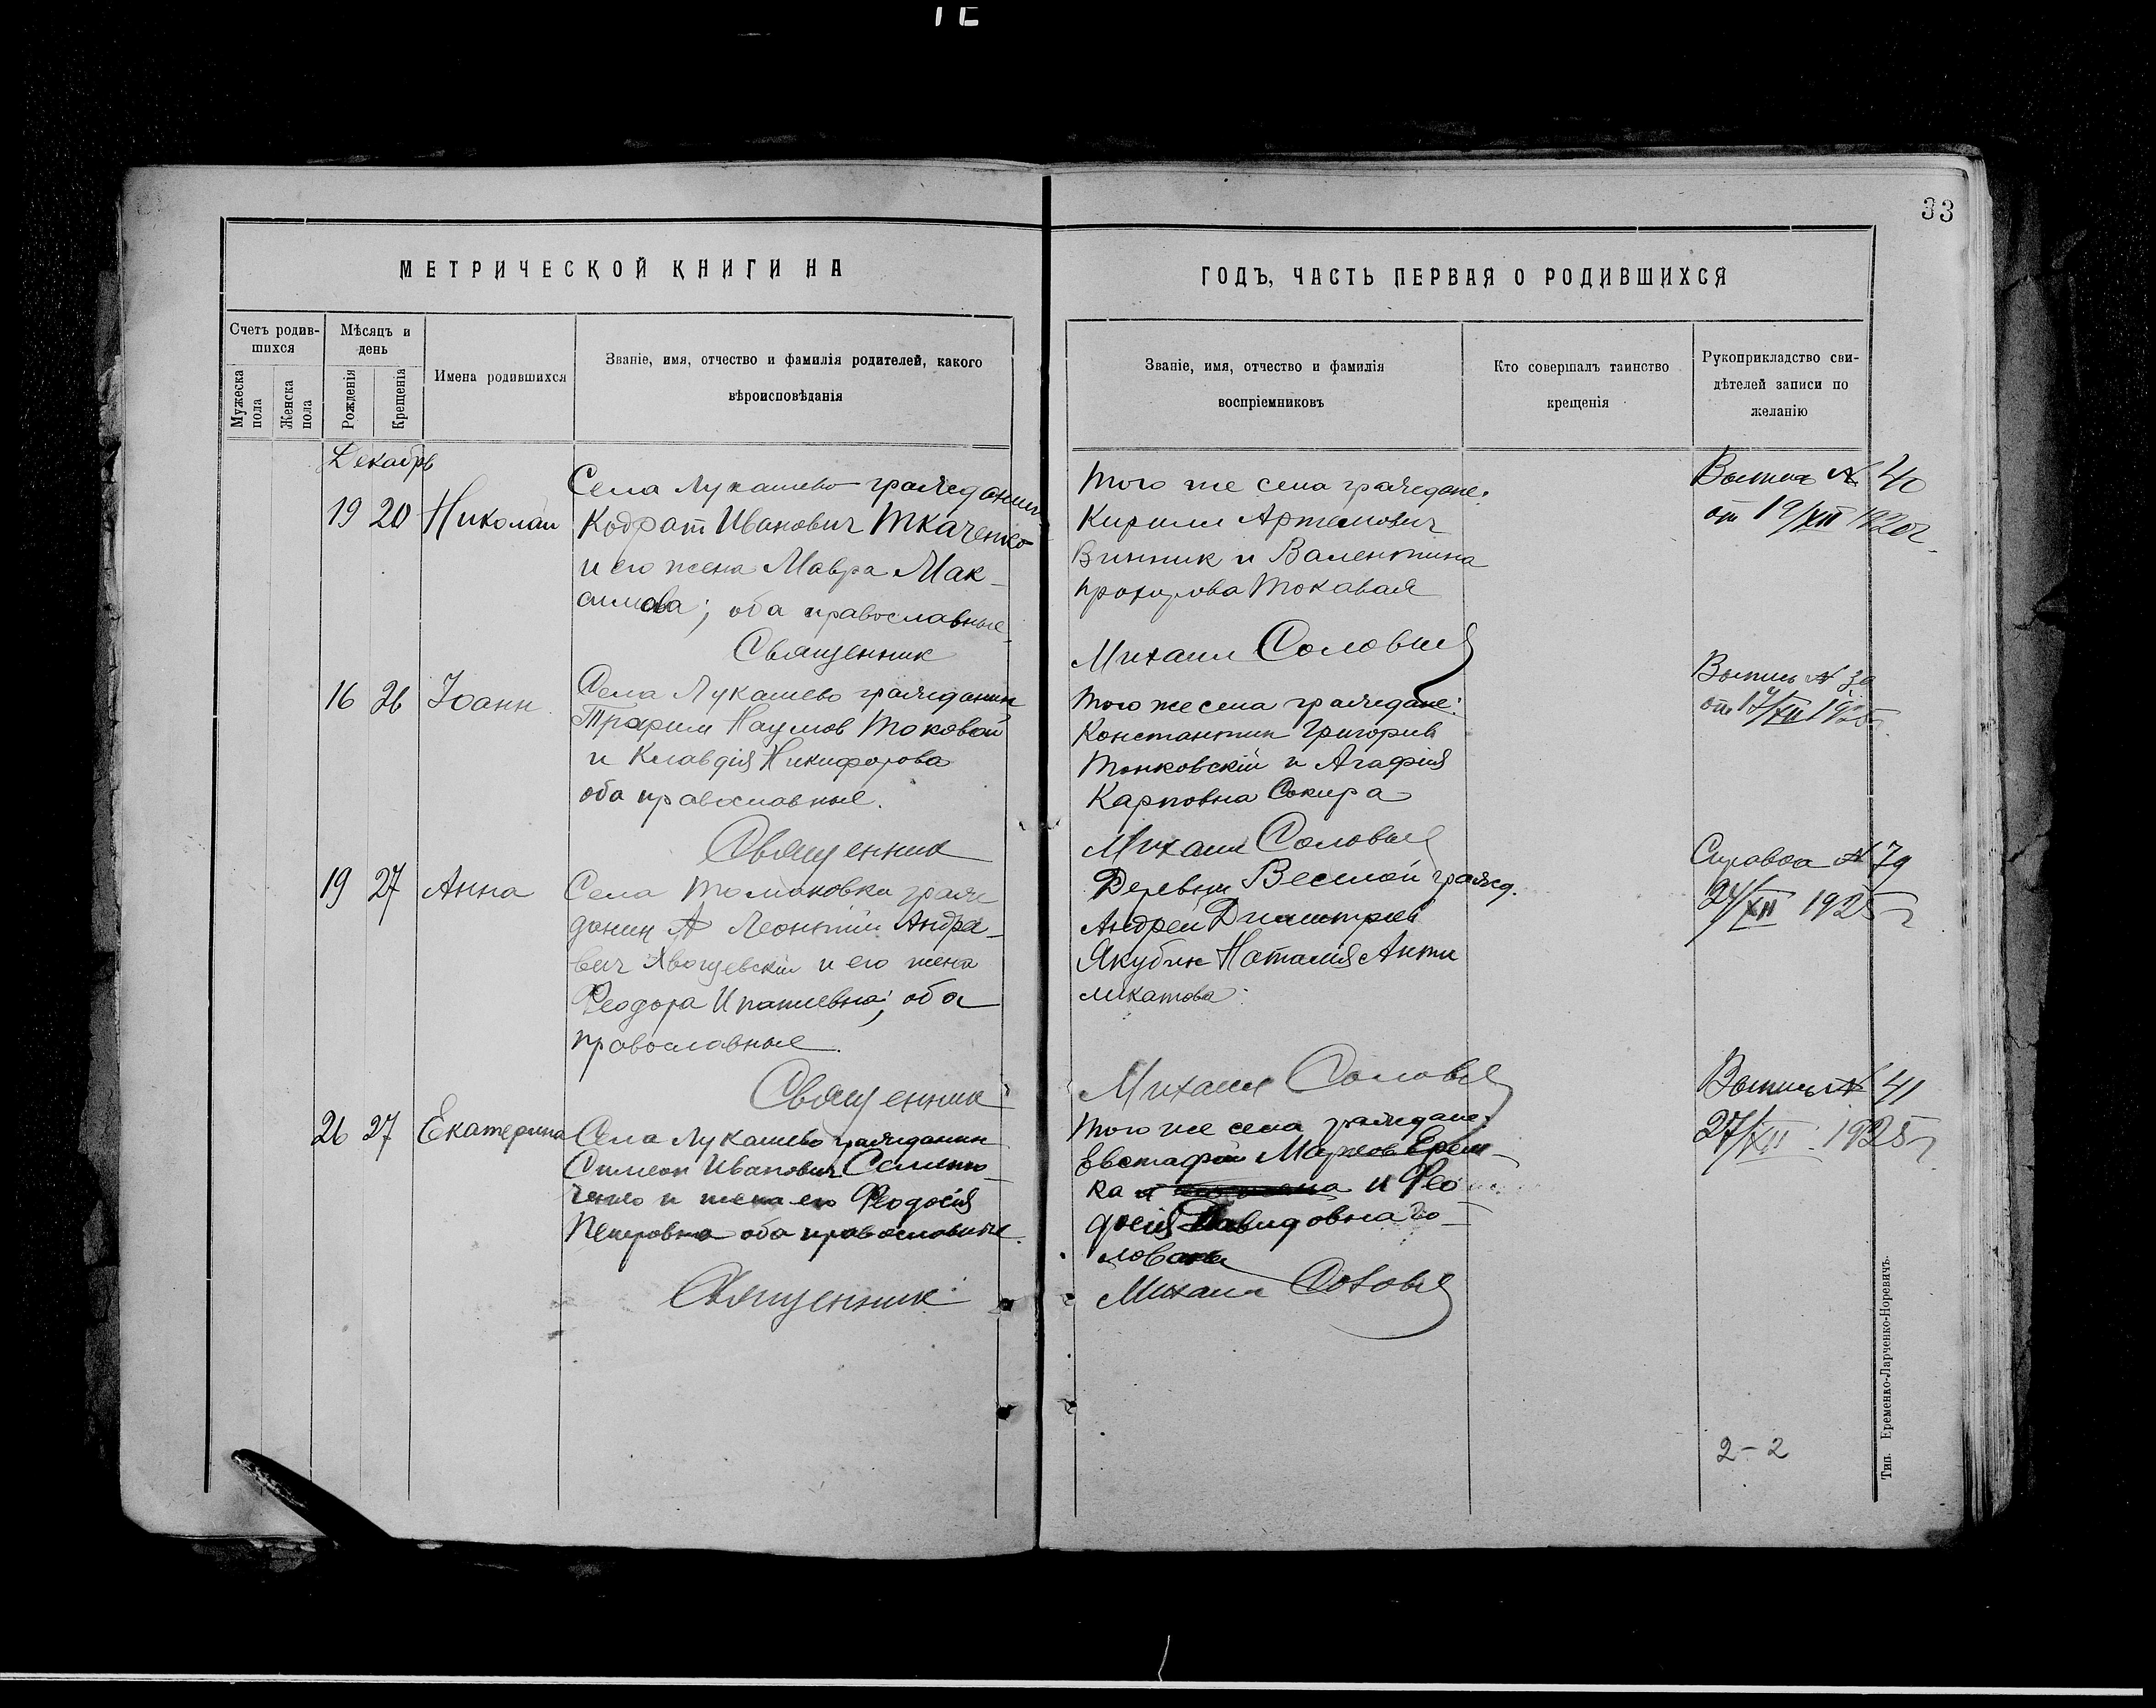 33
МЕТРИЧЕСКОЙ КНИГИ НА
ГОДЪ, ЧАСТЬ ПЕРВАЯ О РОДИВШИХСЯ
Счетъ родив-
шихся
Мужеска
пола
Женска
пола
Мѣсяцъ и
день
Рожденія
Крещенія
Имена родившихся
Званіе, имя, отчество и фамилія родителей, какого
вѣроисповѣданія
Званіе, имя, отчество и фамилія
воспріемниковъ
Кто совершалъ таинство
крещенія
Рукоприкладство сви-
дѣтелей записи по
желанію
Декабрь
19 20 Николай
Села Лукашево гражданин
Кодрат Иванович Ткаченко
и его жена Мавра Мак-
симова; оба православные
Священник
Того же села граждане:
Кирилл Артемович
Винник и Валентина
Прохорова Токавая
Михаил Соловьев
Выпись № 40
от 19/XII 1925г.
16 26 Іоанн
Села Лукашево гражданин
Трофим Наумов Токовой
и Клавдія Никифорова
оба православные.
Священник
Того же села граждане:
Константин Григорьев
Тонковскій и Агафія
Карповна Сокира
Михаил Соловьев
Выпись № 39
от 17/XII 1925
19 27 Анна
Села Томаковки граж
данин Леонтій Андре-
вич и его жена
Феодора Ипатиевна; оба
православные.
Священник
Деревни Веселой гражд.
Андрей Димитриев
Якубин Наталія Анти
Михаил Соловьев
Справка № 79
24/XII 1925г
26 27 Екатерина
Села Лукашево гражданин
Симеон Иванович Семени
ченко и жена его Феодосія
Петровна оба православные.
Священник
Того же села граждане:
Евстафій Марков Ерем-
ка и Фео
досія Давидовна Го-
ловань
Михаил Соловьев
Выпись № 41
27/XII 1925г
2-2
Тип. Еременко-Ларченко-Норевичъ.